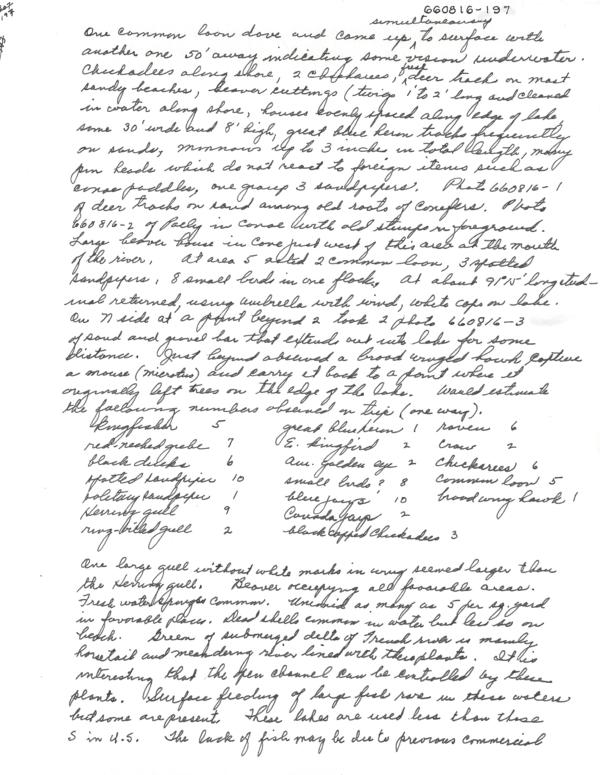 660816-197
simultaneously
One common loon dove and came up, to surface with
another one 50' away indicating some vision underwater.
Chickadees along shore, 2 chickarees, fresh deer track on most
sandy beaches, beaver cuttings (twigs 1' to 2' long and cleaned
in water along shore, houses evenly spaced along edge of lake,
some 30' wide and 8' high, great blue heron tracks frequently
on sands, minnows up to 3 inches in total length, many
pin heads which do not react to foreign items such as
canoe paddles, one group 3 sandpipers. Photo 660816-1
of deer tracks on sand among old roots of conifers. Photo
660816-2 of Polly in canoe with old stumps in foreground.
Large beaver house in cove just west of this area at the mouth
of the river. At area 5 noted 2 common loon, 3 spotted
sandpipers, 8 small birds in one flock. At about 91°15' longitud-
inal returned, using umbrella with wind, white caps on lake.
On N side at a point beyond 2 took 2 photo 660816-3
of sand and gravel bar that extends out into lake for some
distance. Just beyond observed a broad winged hawk capture
a mouse (microtus) and carry it back to a point where it
originally left trees on the edge of the lake. Would estimate
the following numbers observed on trip (one way).
Kingfisher 5 great blue heron 1 raven 6
red-necked grebe 7 E. Kingbird 2 crow 2
black ducks 6 am. golden eye 2 Chickarees 6
spotted sandpiper 10 small birds? 8 common loon 5
solitary sandpiper 1 blue jays 10 broadwing hawk 1
Herring gull 9 Canada jays 2
ring-billed gull 2 black capped chickadees 3
One large gull without white marks in wing seemed larger than
the Herring gull. Beaver occupying all favorable areas.
Fresh water sponges common. Unionid as many as 5 per sq. yard
in favorable places. Dead shells common in water but less so on
beach. Green of submerged delta of French river is mainly
horsetail and meandering river lined with these plants. It is
interesting that the open channel can be controlled by these
plants. Surface feeding of large fish rare in these waters
but some are present. These lakes are used less than those
S in U.S. The lack of fish may be due to previous commercial